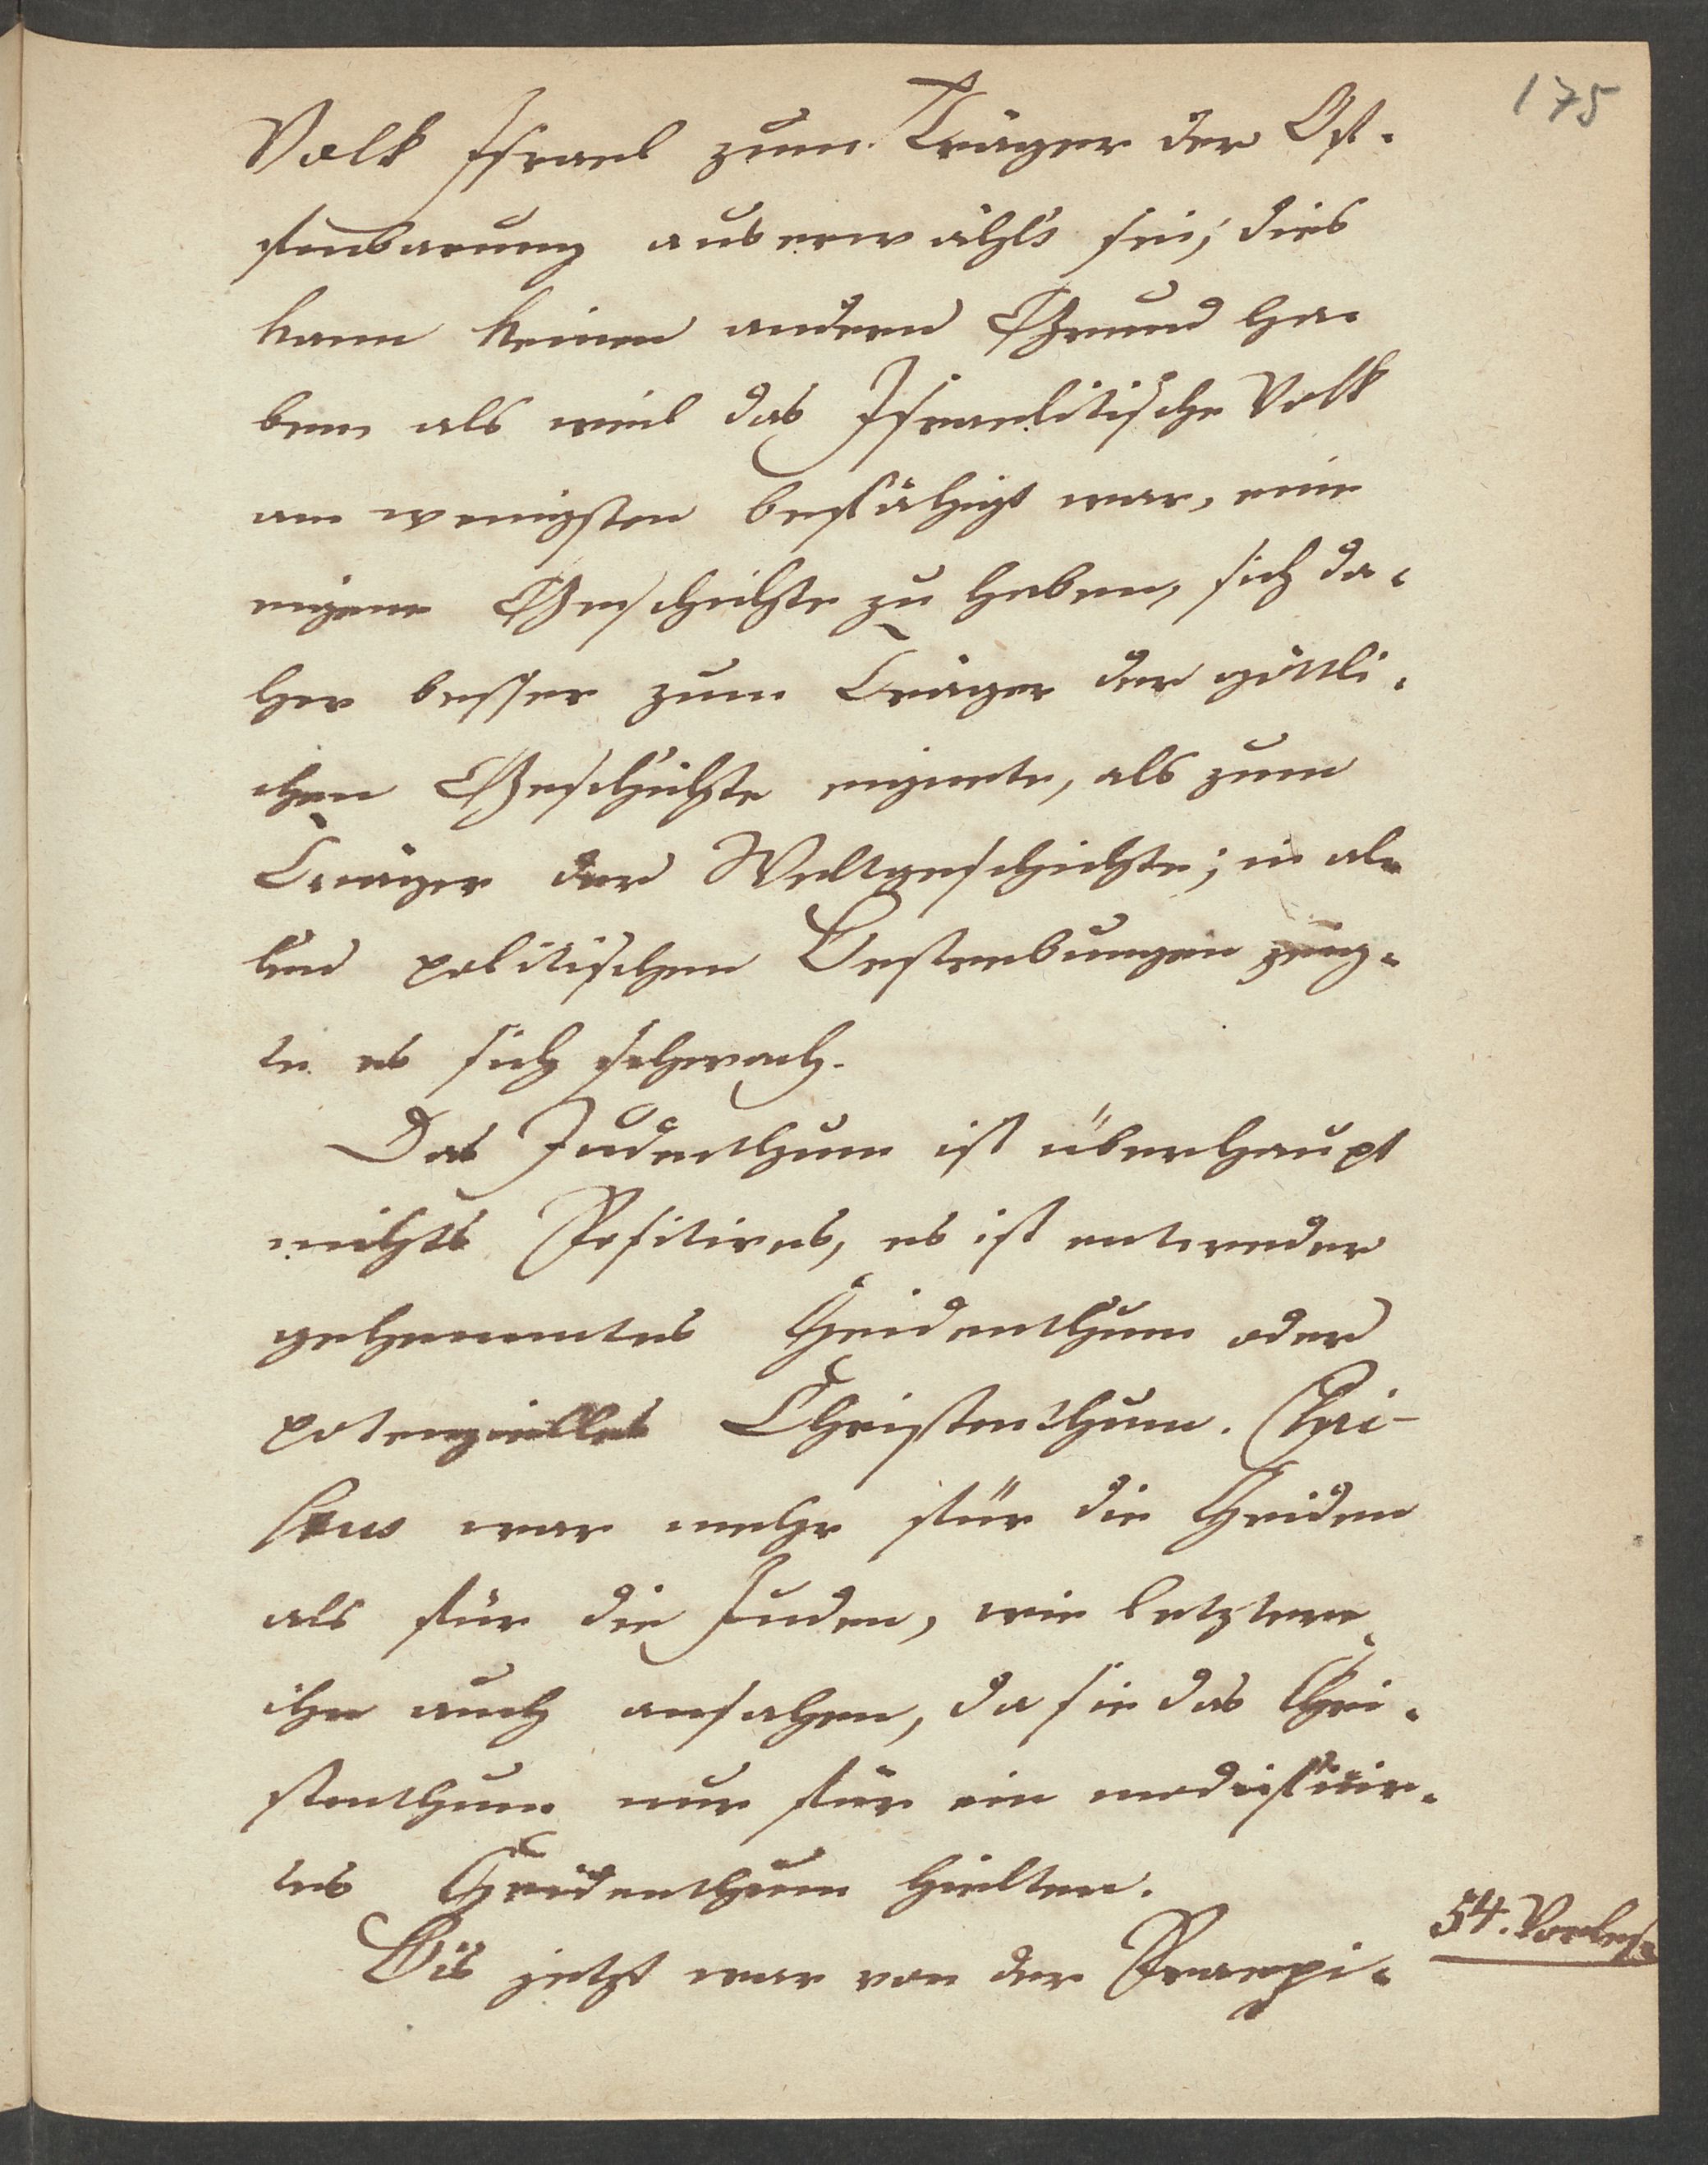 175
Volk Israel zum Träger der Of-
fenbarung auserwählt sei; dies
kann keinen andern Grund ha-
ben als weil das Israelitische Volk
am wenigsten befähigt war, eine
eigene Geschichte zu haben, sich da-
her besser zum Träger der göttli-
chen Geschichte eignete, als zum
Träger der Weltgeschichte; in al-
len politischen Bestrebungen zeig-
te es sich schwach.
Das Judenthum ist überhaupt
nichts Positives, es ist entweder
gehemmtes Heidenthum oder
potenzielles Christenthum. Chri-
stus war mehr für die Heiden
als für die Juden, wie letztere
ihn auch ansahen, da sie das Chri-
stenthum nur für ein modifizir-
tes Heidenthum hielten.
54. Vorles.
Bis jetzt war von der Praexi-